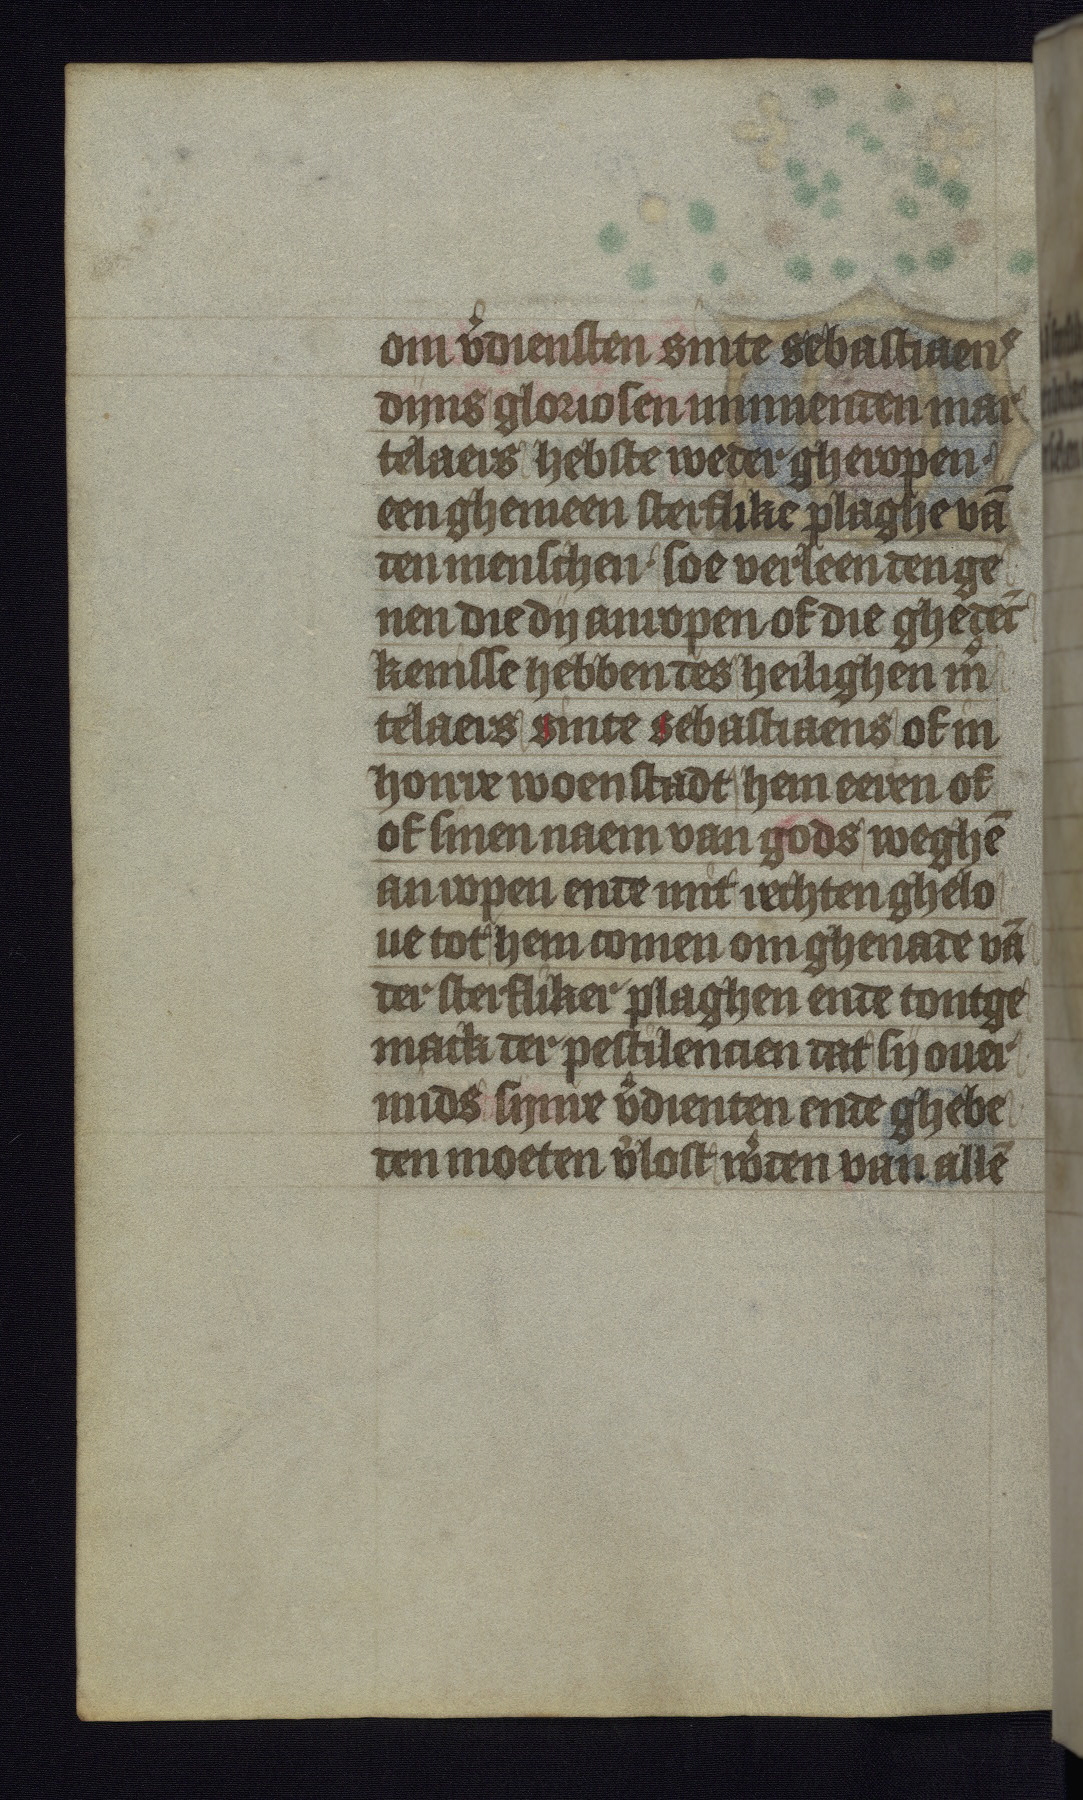 om v̉diensten sinte sebastiaenˢ
dijns gloriosen minnenden mar
telaers hebste weder gheropen·
een ghemeen sterflike plaghe vā
den menschen· soe verleen den ge
nen die dij anropen of die ghedēc
kenisse hebben des heilighen mr̉
telaers sinte sebastiaens of in
honre woenstadt hem eeren of
of sinen naem van gods weghē
an ropen ende mit rechten ghelo
ue tot hem comen om ghenade vā
der sterfliker plaghen ende tontge
mack der pestilencien dat sij ouer
mids synre v̉dienten ende ghebe
den moeten v̉lost w̉den van allē